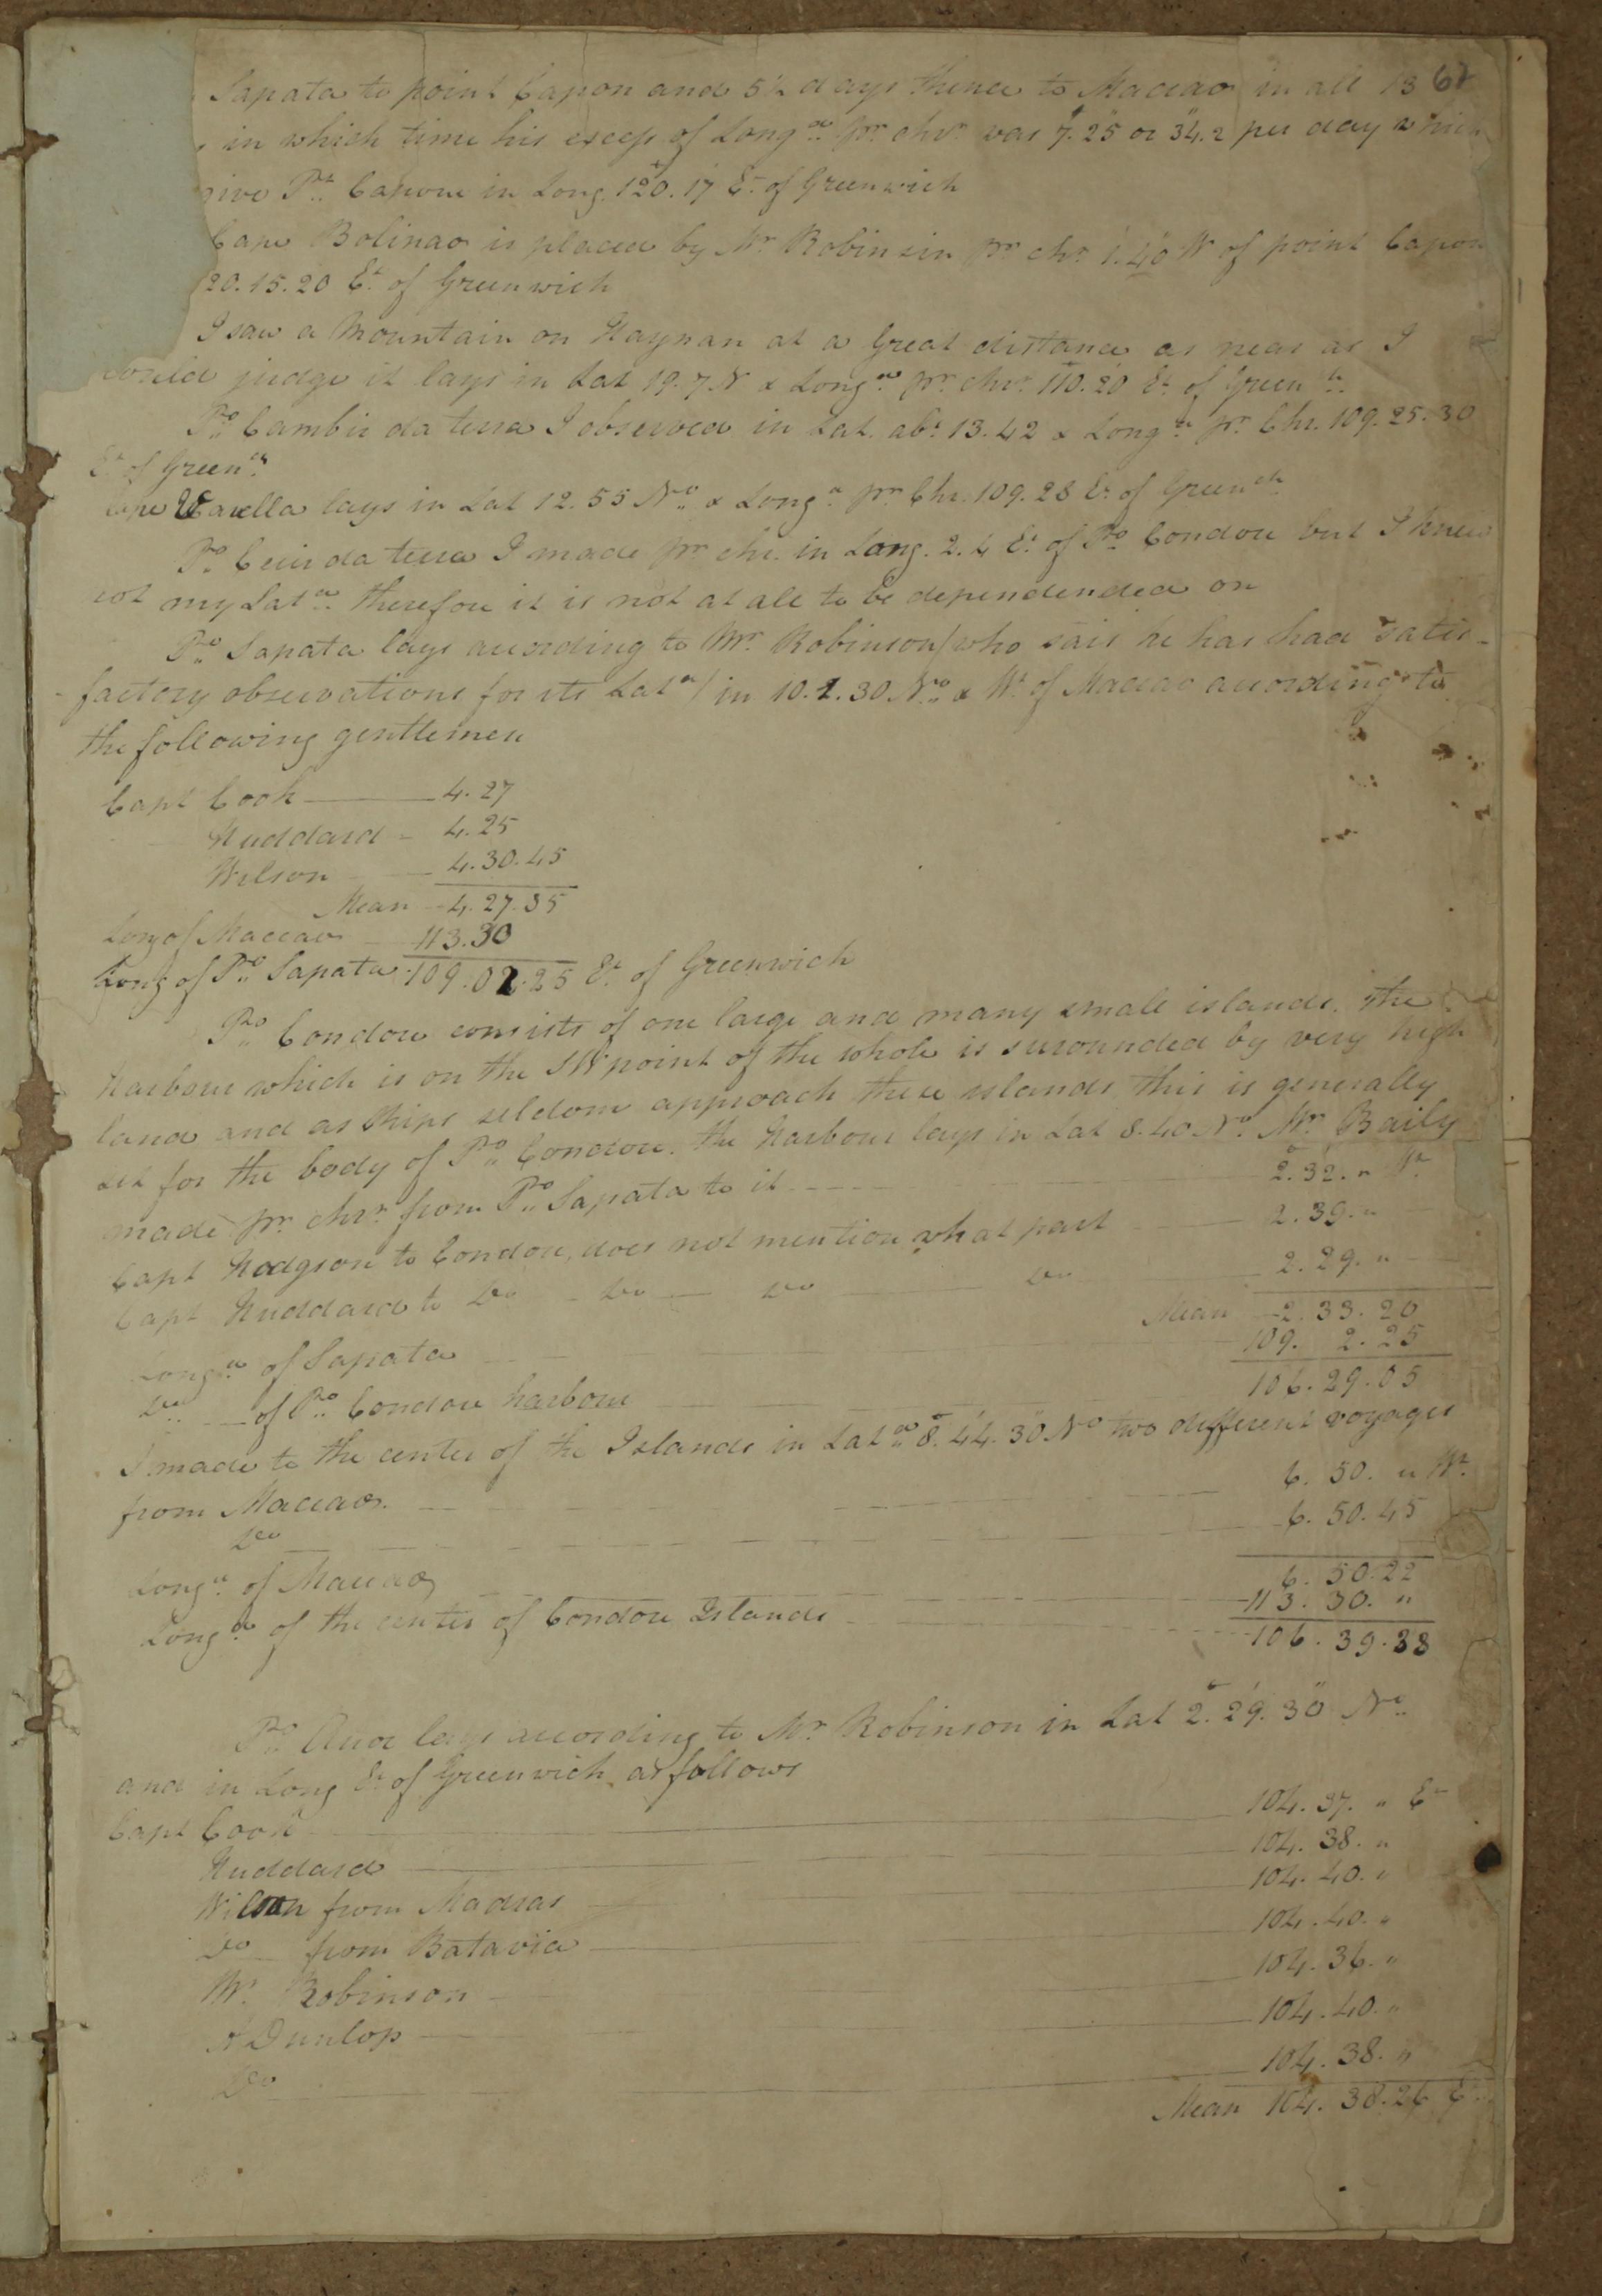 Sapata to point Capon and 5½ days thence to Maccao in all 13
in which time his excess of Longde pr chrr was 7'.25" or 34".2 per day which
give Pt Capone in Long. 120.17 Et of Greenwich
Cape Bolinao is placed by Mr Robinson pr chr 1'.40" W of point Capon
20.15.20 Et of Greenwich
I saw a Mountain on Haynan at a Great distance as near as I
could judge it lays in Lat 19.7 N & Longde pr chrr 110.20 Et of Greench
Po Cambir da terra I observed in Lat. abt 13.42 & Longde pr Chr. 109.25.30
Et of Greench
Cape Varella lays in Lat 12.55 No & Longe pr Chr. 109.28 Et of Greench
Po Cecir da terra I made pr chr. in Long. 2.4 Et of Po Condore but I knew
not my Latde therefore it is not at all to be dependended on
Po Sapata lays according to Mr Robinson (who sais he has had satis-
factory observations for its Latde) in 10.1.30 No & Wt of Maccao according to
the following gentlemen
Capt Cook 4.27
Huddard - 4.25
Wilson 4.30.45
Mean 4.27.35
Long of Maccao 113.30
Long of Po Sapata 109.02.25 Et of Greenwich
Po Condore consists of one large and many small islands. The
Harbour which is on the SW point of the whole is surounded by very high
land and as ships seldom approach these islands this is generally
set for the body of Po Condore. the Harbour lays in Lat 8.40 No Mr Baily
made pr chrr from Po Sapata to it 2°.32'. " Wt
Capt Hodgson to Condore, does not mention what part 2.39. "
Capt Huddard to Do Do Do Do 2.29. "
Mean 2.33.20
Longde of Sapata 109. 2.25
Do of Po Condore harbour 106.29.05
I made to the center of the Islands in Latde 8°.44'.30" No two different voyages
from Maccao. 6.50. " Wt
Do 6.50.45
6.50.22
Longe of Maccao 113.30. "
Longde of the center of Condore Islands 106.39.38
Po Auor lays according to Mr Robinson in Lat 2°.29'.30" No
and in Long Et of Greenwich as follows
Capt Cook 104.37. " Et
Huddard 104.38. "
Wilson from Madras 104.40. "
Do from Batavia 104.40. "
Mr Robinson 104.36. "
A Dunlop 104.40. "
Do 104.38. "
Mean 104.38.26 Et